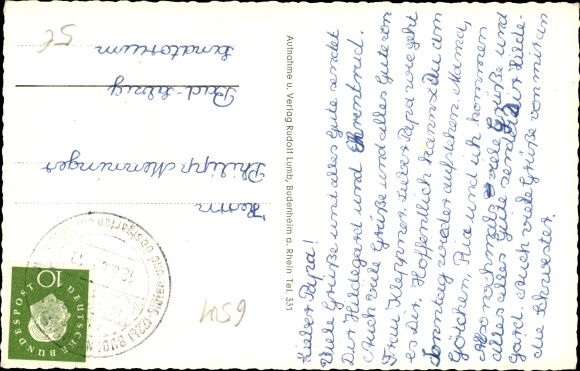 Lieber Papa!
Viele Grüße und alles Gute sendet
Dir Hildegard und Ehrentrud.
Auch viele Grüße und alles Gute von
Frau Kleppner. Lieber Papa wie geht
es Dir. Hoffentlich kannst Du am
Sonntag wieder aufstehen. Mama,
Gretchen, Pia und ich kommen
Also nochmals viele Grüße und
alles alles Gute sendet Dir Hilde-
gard. Auch viele Grüße von mir an
die Schwester.
Aufnahme u. Verlag Rudolf Lumb, Budenheim a. Rhein Tel. 331
Herrn
Philipp Memminger
Bad-
Sanatorium
10
DEUTSCHE
BUNDESPOST
56
6501